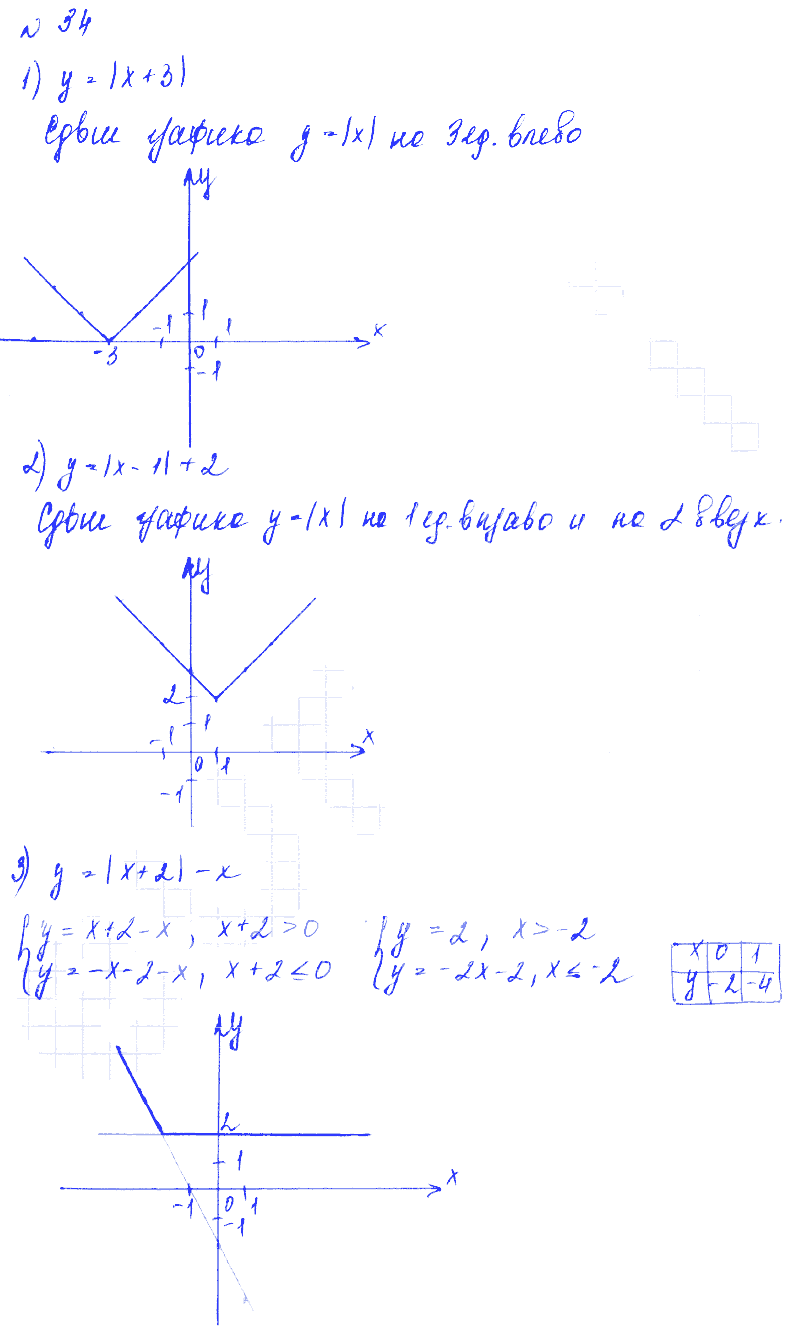 № 34
1) y = |x + 3|
Сдвиг графика y = |x| на 3 ед. влево
y
-1 1 1 x
-3 0
-1
2) y = |x - 1| + 2
Сдвиг графика y = |x| на 1 ед. вправо и на 2 вверх.
y
2
1
-1 x
0 1
-1
3) y = |x+2| - x
{ y = x+2-x, x+2 > 0 { y = 2, x > -2
{ y = -x-2-x, x+2 ≤ 0 { y = -2x-2, x ≤ -2
x 0 1
y -2 -4
y
2
1
x
-1 0 1
-1